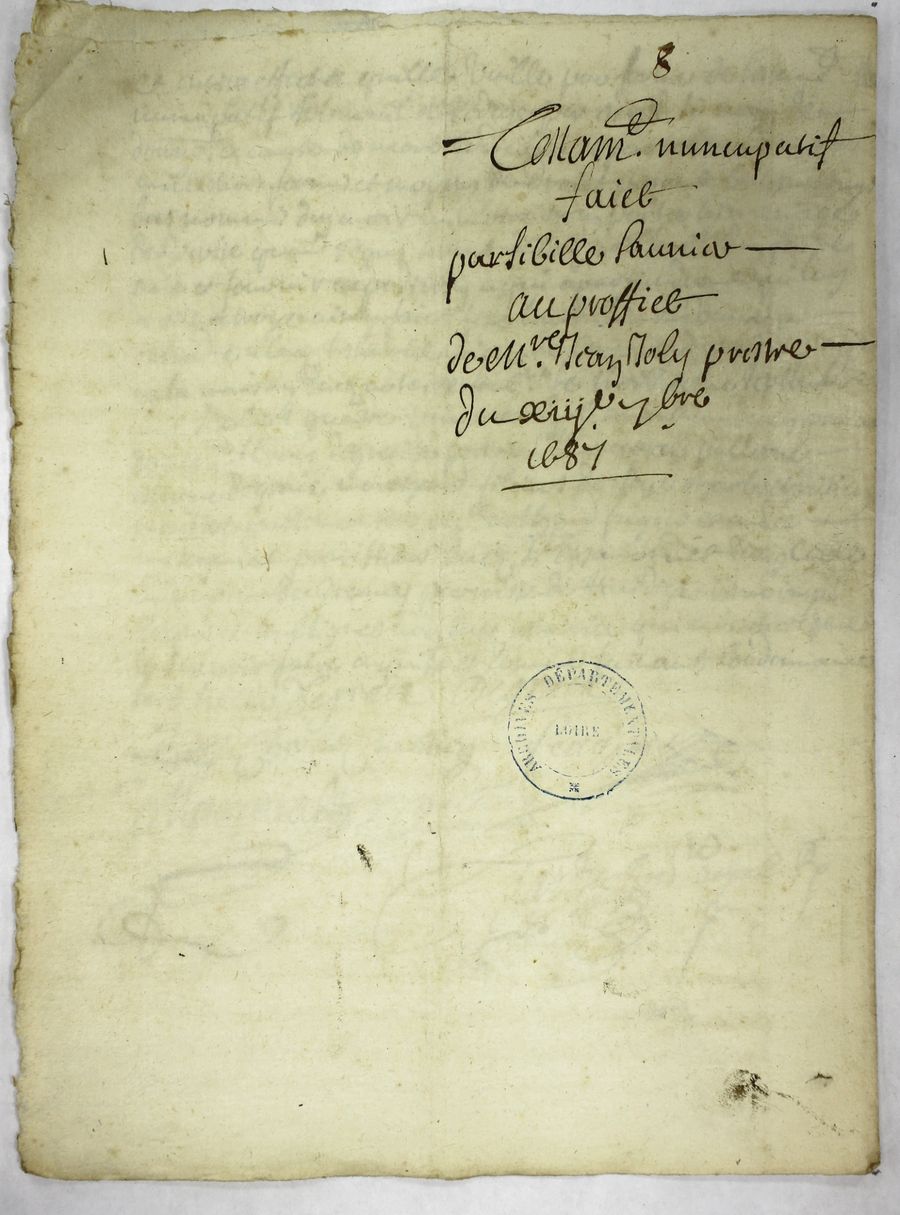 8
= Testam.t nuncupatif
faict
par Sibille Saunier
au proffict
de M.re Jean Joly prestre
du xiiij.e 7bre
1687
ARCHIVES DÉPARTEMENTALES
LOIRE